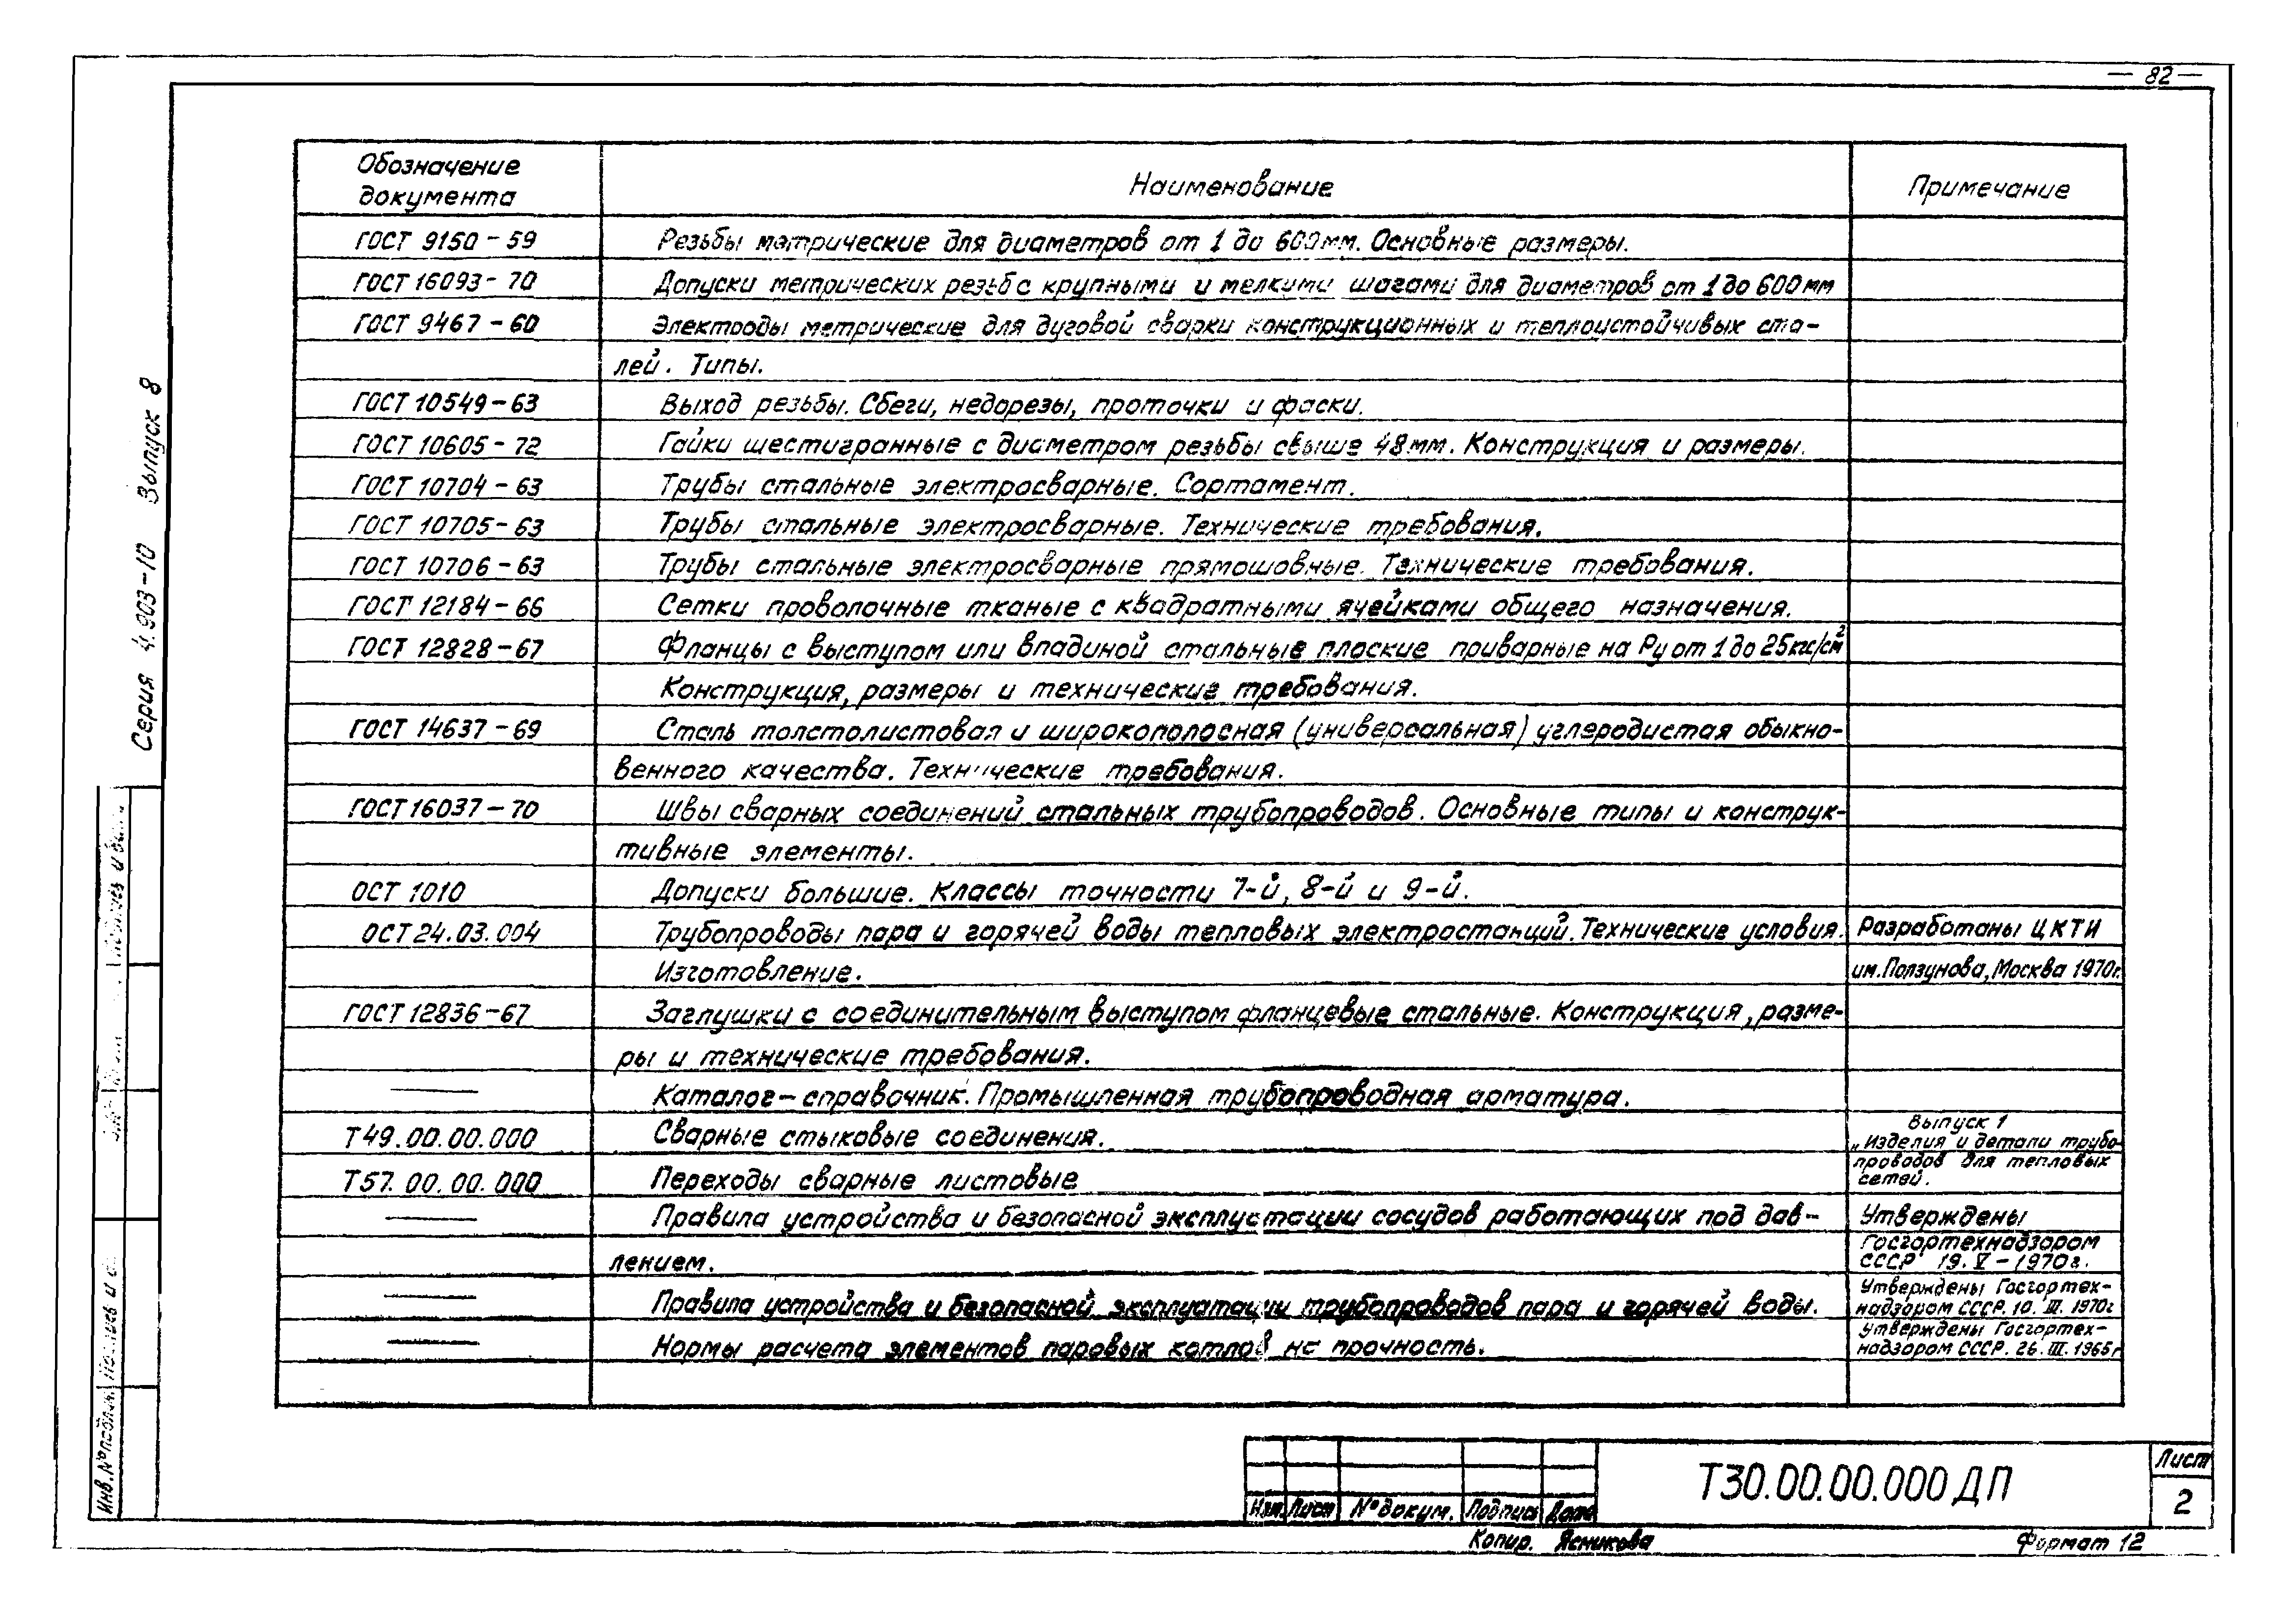 — 82 —
Обозначение документа
Наименование
Примечание
ГОСТ 9150 – 59
Резьбы метрические для диаметров от 1 до 600мм. Основные размеры.
ГОСТ 16093 – 70
Допуски метрических резьб с крупными и мелкими шагами для диаметров от 1 до 600 мм
ГОСТ 9467 – 60
Электроды метрические для дуговой сварки конструкционных и теплоустойчивых ста-
лей. Типы.
ГОСТ 10549 – 63
Выход резьбы. Сбеги, недорезы, проточки и фаски.
ГОСТ 10605 – 72
Гайки шестигранные с диаметром резьбы свыше 48 мм. Конструкция и размеры.
ГОСТ 10704 – 63
Трубы стальные электросварные. Сортамент.
ГОСТ 10705 – 63
Трубы стальные электросварные. Технические требования.
ГОСТ 10706 – 63
Трубы стальные электросварные прямошовные. Технические требования.
ГОСТ 12184 – 66
Сетки проволочные тканые с квадратными ячейками общего назначения.
ГОСТ 12828 – 67
Фланцы с выступом или впадиной стальные плоские приварные на Ру от 1 до 25 кгс/см²
Конструкция, размеры и технические требования.
ГОСТ 14637 – 69
Сталь толстолистовая и широкополосная (универсальная) углеродистая обыкно-
венного качества. Технические требования.
ГОСТ 16037 – 70
Швы сварных соединений стальных трубопроводов. Основные типы и конструк-
тивные элементы.
ОСТ 1010
Допуски большие. Классы точности 7-й, 8-й и 9-й.
ОСТ 24.03.004
Трубопроводы пара и горячей воды тепловых электростанций. Технические условия.
Разработаны ЦКТИ
Изготовление.
им. Ползунова, Москва 1970г.
ГОСТ 12836 – 67
Заглушки с соединительным выступом фланцевые стальные. Конструкция, разме-
ры и технические требования.
—
Каталог – справочник. Промышленная трубопроводная арматура.
Т49.00.00.000
Сварные стыковые соединения.
Выпуск 1
„Изделия и детали трубо-
Т57.00.00.000
Переходы сварные листовые
проводов для тепловых
сетей.
—
Правила устройства и безопасной эксплуатации сосудов работающих под дав-
Утверждены
лением.
Госгортехнадзором
СССР 19. V – 1970г.
—
Правила устройства и безопасной эксплуатации трубопроводов пара и горячей воды.
Утверждены Госгортех-
надзором СССР. 10. III. 1970г
—
Нормы расчета элементов паровых котлов на прочность.
Утверждены Госгортех-
надзором СССР. 26. III. 1965г
Серия 4.903-10 Выпуск 8
Инв. № подлин.
Изм. Лист № докум. Подпись Дата
Т30.00.00.000 ДП
Лист
2
Копир. Ясникова
Формат 12